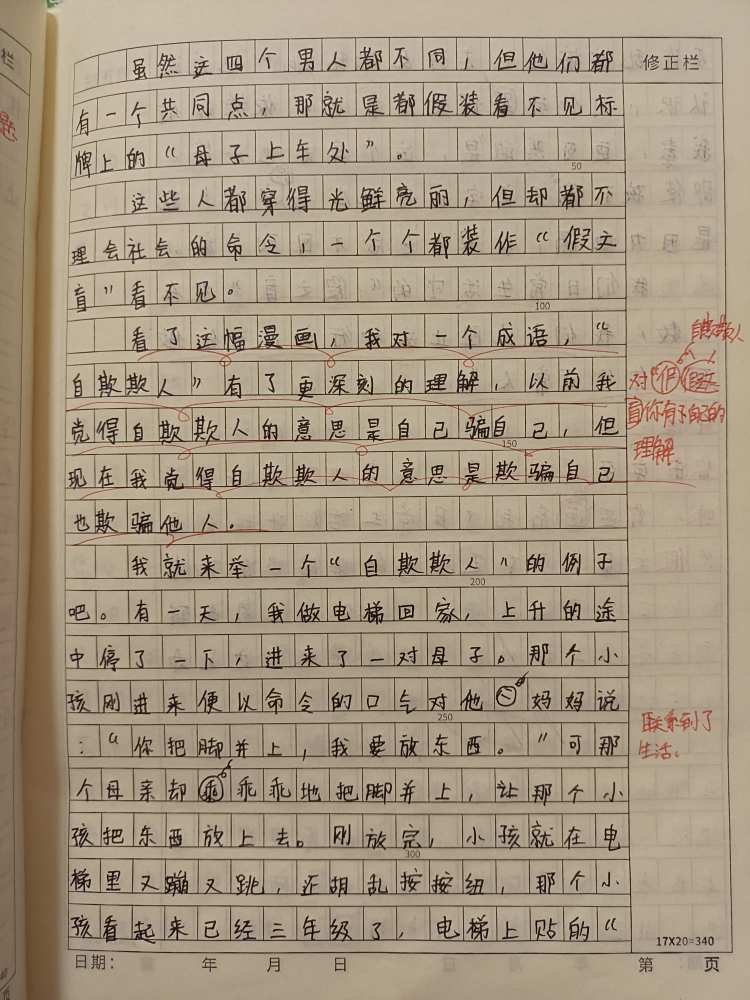 虽然这四个男人都不同，但他们都
修正栏
有一个共同点，那就是都假装看不见标
牌上的“母子上车处”。
50
这些人都穿得光鲜亮丽，但却都不
理会社会的命令，一个个都装作“假文
盲”看不见。
100
看了这幅漫画，我对一个成语，“
自欺欺人”有了更深刻的理解，以前我
觉得自欺欺人的意思是自己骗自己，但
150
现在我觉得自欺欺人的意思是欺骗自己
也欺骗他人。
自欺欺人
盲你有了自己的
理解
我就来举一个“自欺欺人”的例子
200
吧。有一天，我做电梯回家，上升的途
中停了一下，进来了一对母子。那个小
孩刚进来便以命令的口气对他妈妈说
250
：“你把脚并上，我要放东西。”可那
联系到了
生活。
个母亲却乖乖地把脚并上，让那个小
孩把东西放上去。刚放完，小孩就在电
300
梯里又蹦又跳，还胡乱按按纽，那个小
孩看起来已经三年级了，电梯上贴的“
17X20=340
日期： 年 月 日 第 页